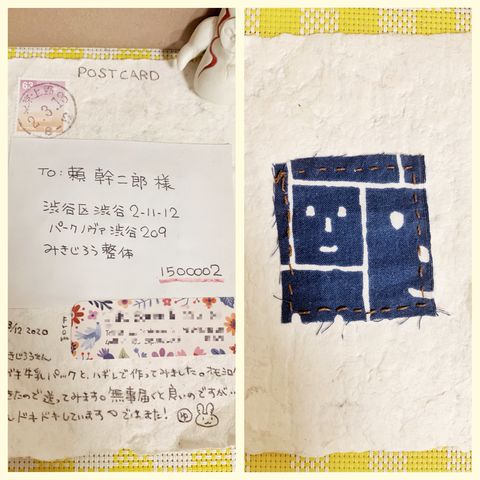 POSTCARD
63
TO: 頼 幹二郎 様
渋谷区 渋谷 2-11-12
パークノヴァ渋谷209
みきじろう整体
1500002
From
3/12 2020
きじろうさん
ガキ牛乳パックと、ハギレで作ってみました。
きたので送ってみます。無事届くと良いのですが…
しドキドキしています♡ではまた! ゆ